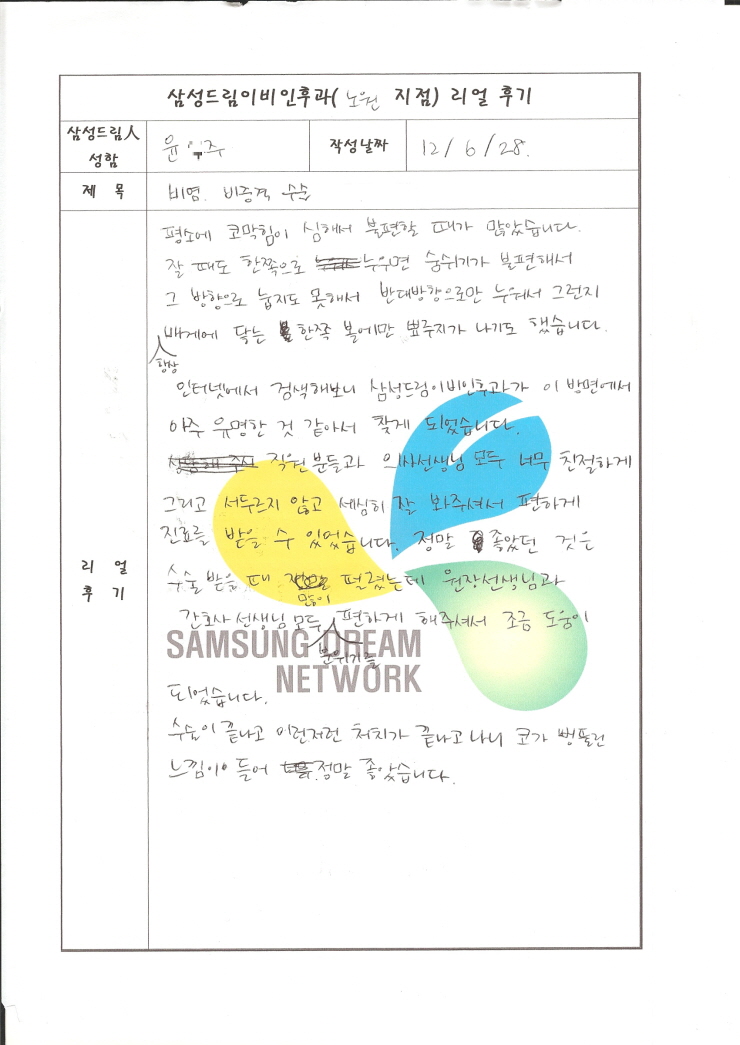 삼성드림이비인후과( 노원 지점) 리얼 후기
삼성드림人
성함
윤 주
작성날짜
12/6/28.
제 목
비염. 비중격 수술
리 얼
후 기
평소에 코막힘이 심해서 불편할 때가 많았습니다.
잘 때도 한쪽으로 누우면 숨쉬기가 불편해서
그 방향으로 눕지도 못해서 반대방향으로만 누워서 그런지
베게에 닿는 한쪽 볼에만 뾰루지가 나기도 했습니다.
항상
인터넷에서 검색해보니 삼성드림이비인후과가 이 방면에서
아주 유명한 것 같아서 찾게 되었습니다.
직원분들과 의사선생님 모두 너무 친절하게
그리고 서두르지 않고 세심히 잘 봐주셔서 편하게
진료를 받을 수 있었습니다. 정말 좋았던 것은
수술 받을 때 떨렸는데 원장선생님과
많이
간호사 선생님 모두 편하게 해주셔서 조금 도움이
분위기를
되었습니다.
수술이 끝나고 이런저런 처치가 끝나고 나니 코가 뻥뚫린
느낌이 들어 정말 좋았습니다.
SAMSUNG DREAM
NETWORK